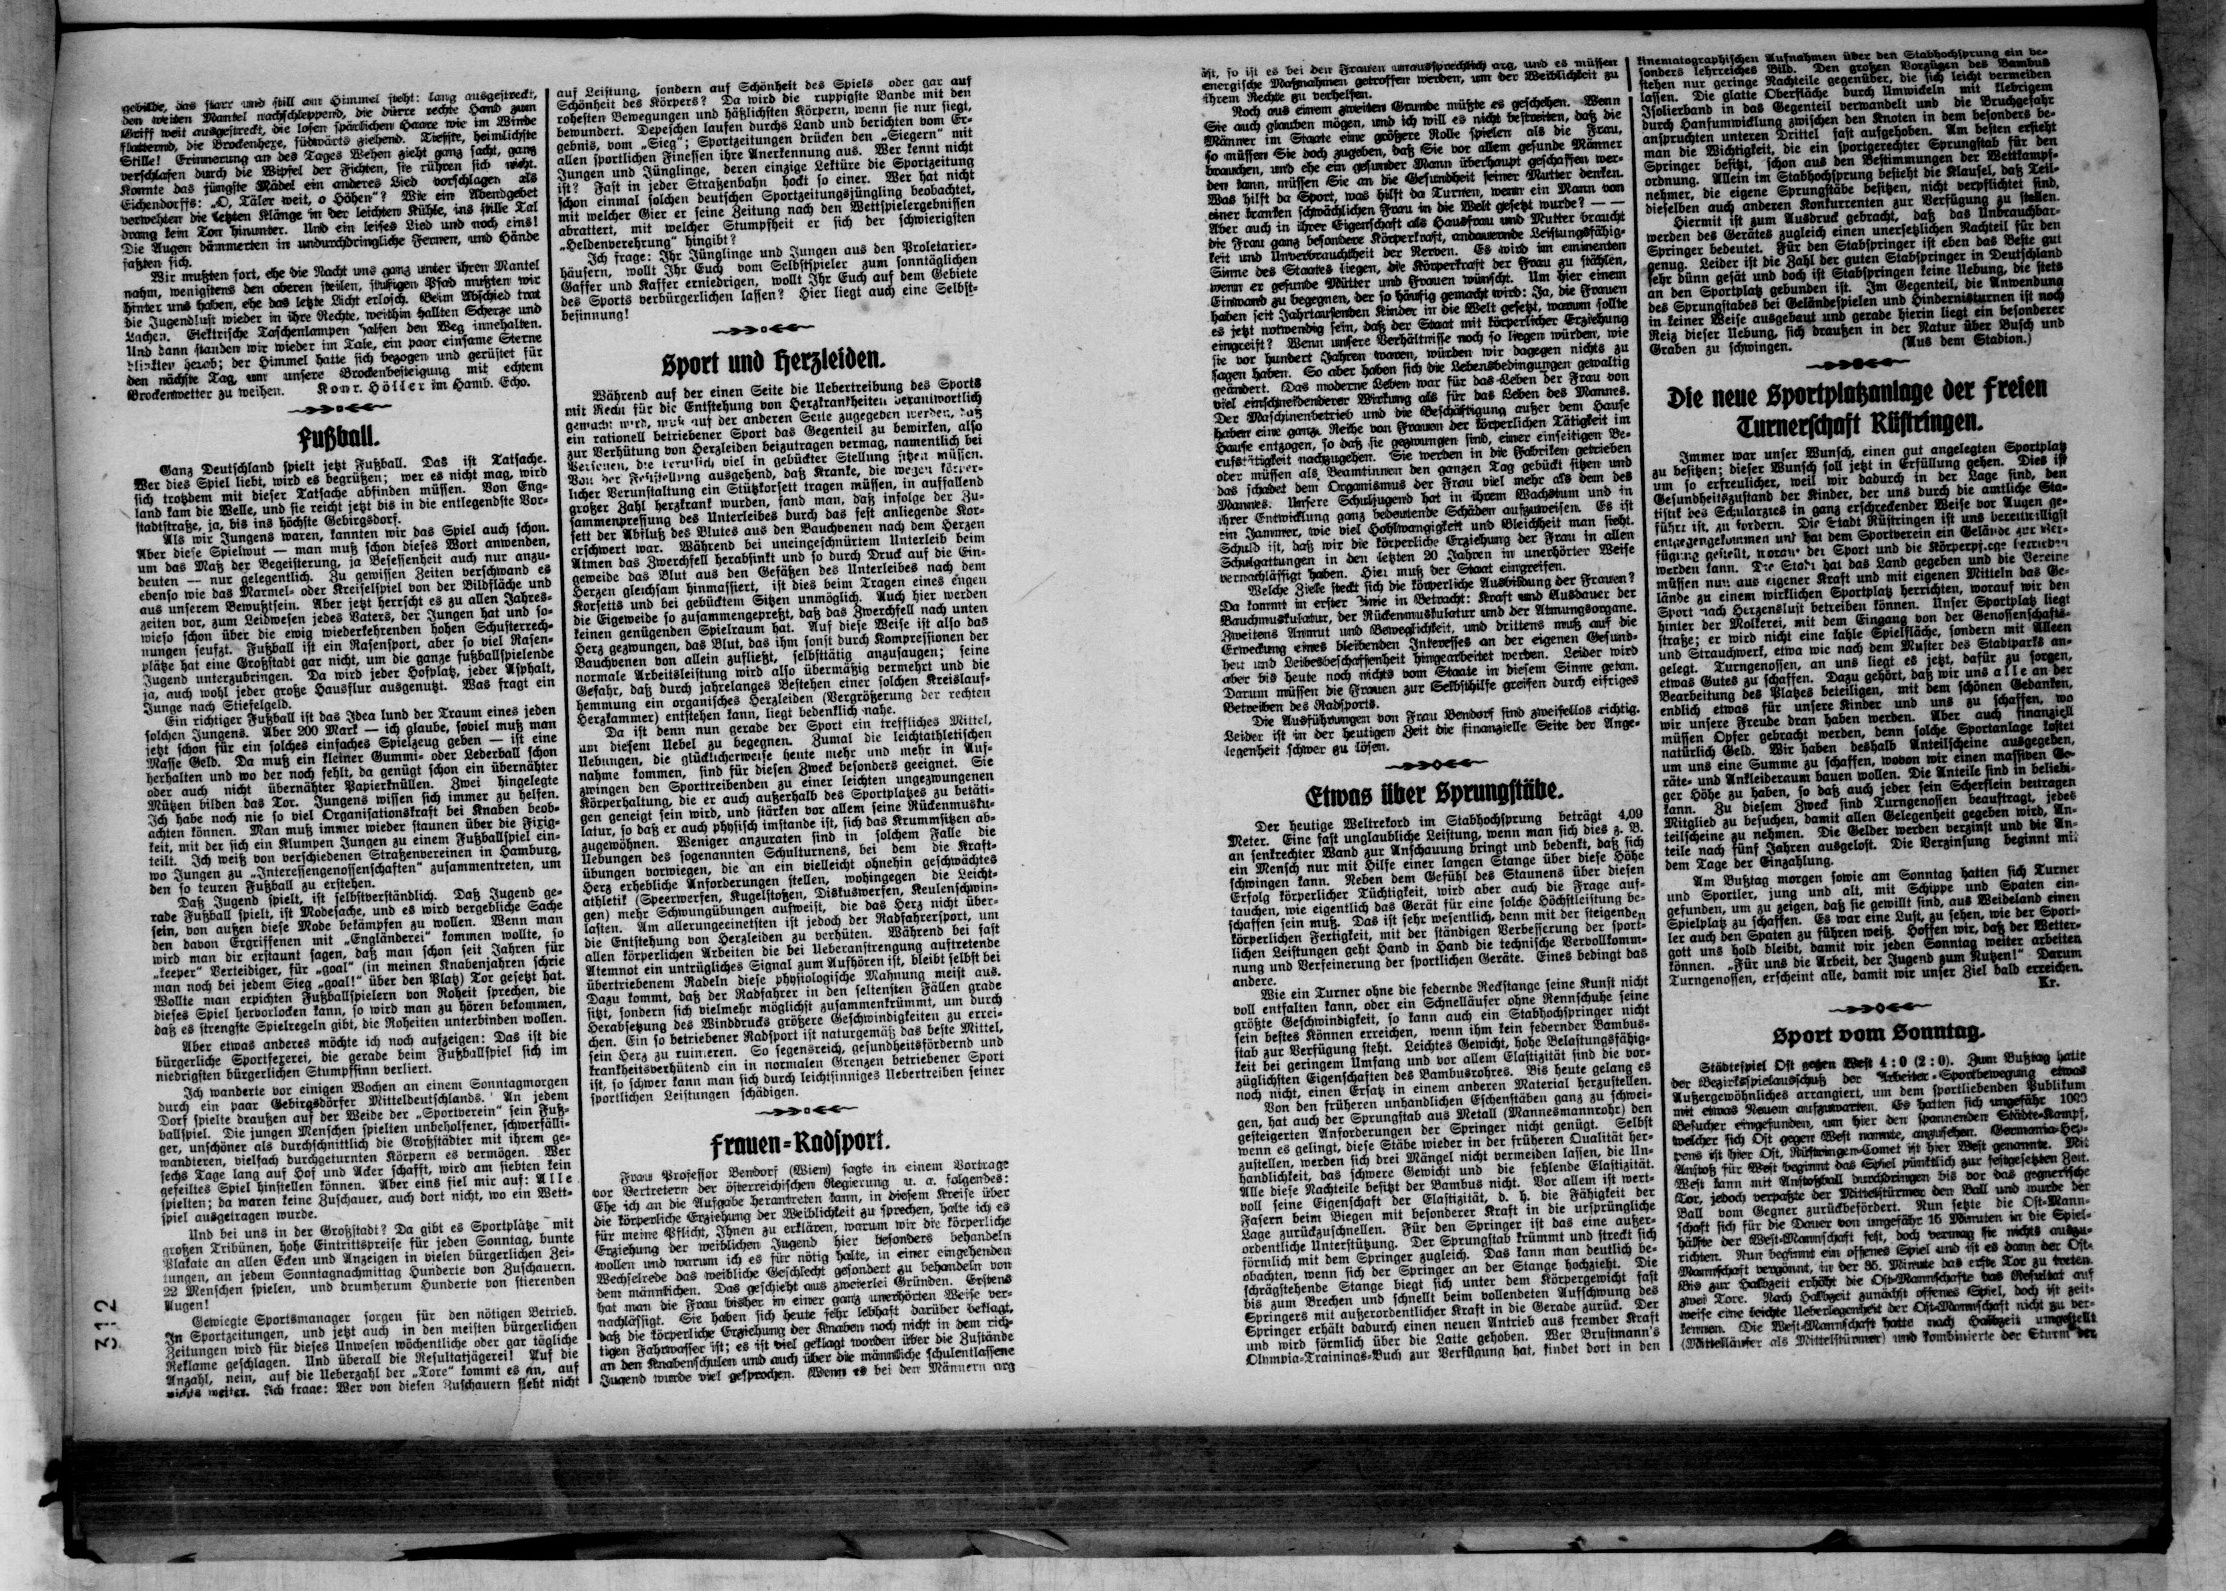 gebilde, das starr und still am Himmel steht: lang ausgestreckt,
den weiten Mantel nachschleppend, die dürre rechte Hand zum
Griff weit ausgestreckt, die losen spärlichen Haare wie im Winde
flatternd, die Brockenhexe, südwärts ziehend. Tiefste, heimlichste
Stille! Erinnerung an des Tages Wehen zieht ganz sacht, ganz
verschlafen durch die Wipfel der Fichten, sie rühren sich nicht.
Konnte das jüngste Mädel ein anderes Lied vorschlagen als
Eichendorffs: „O, Täler weit, o Höhen“? Wie ein Abendgebet
verwehten die letzten Klänge in der leichten Kühle, ins stille Tal
drang kein Ton hinunter. Und ein leises Lied und noch eins!
Die Augen dämmerten in undurchdringliche Fernen, und Hände
faßten sich.
Wir mußten fort, ehe die Nacht uns ganz unter ihren Mantel
nahm, wenigstens den oberen steilen, stufigen Pfad mußten wir
hinter uns haben, ehe das letzte Licht erlosch. Beim Abschied trat
die Jugendlust wieder in ihre Rechte, weithin hallten Scherze und
Lachen. Elektrische Taschenlampen halfen den Weg innehalten.
Und dann standen wir wieder im Tale, ein paar einsame Sterne
blinkten herab; der Himmel hatte sich bezogen und gerüstet für
den nächste Tag, um unsere Brockenbesteigung mit echtem
Brockenwetter zu weihen. Konr. Höller im Hamb. Echo.
Fußball.
Ganz Deutschland spielt jetzt Fußball. Das ist Tatsache.
Wer dies Spiel liebt, wird es begrüßen; wer es nicht mag, wird
sich trotzdem mit dieser Tatsache abfinden müssen. Von Eng-
land kam die Welle, und sie reicht jetzt bis in die entlegendste Vor-
stadtstraße, ja, bis ins höchste Gebirgsdorf.
Als wir Jungens waren, kannten wir das Spiel auch schon.
Aber diese Spielwut — man muß schon dieses Wort anwenden,
um das Maß der Begeisterung, ja Besessenheit auch nur anzu-
deuten — nur gelegentlich. Zu gewissen Zeiten verschwand es
ebenso wie das Marmel- oder Kreiselspiel von der Bildfläche und
aus unserem Bewußtsein. Aber jetzt herrscht es zu allen Jahres-
zeiten vor, zum Leidwesen jedes Vaters, der Jungen hat und so-
wieso schon über die ewig wiederkehrenden hohen Schusterrech-
nungen seufzt. Fußball ist ein Rasensport, aber so viel Rasen-
plätze hat eine Großstadt gar nicht, um die ganze fußballspielende
Jugend unterzubringen. Da wird jeder Hofplatz, jeder Asphalt,
ja, auch wohl jeder große Hausflur ausgenutzt. Was fragt ein
Junge nach Stiefelgeld.
Ein richtiger Fußball ist das Idea lund der Traum eines jeden
solchen Jungens. Aber 200 Mark — ich glaube, soviel muß man
jetzt schon für ein solches einfaches Spielzeug geben — ist eine
Masse Geld. Da muß ein kleiner Gummi- oder Lederball schon
herhalten und wo der noch fehlt, da genügt schon ein übernähter
oder auch nicht übernähter Papierknüllen. Zwei hingelegte
Mützen bilden das Tor. Jungens wissen sich immer zu helfen.
Ich habe noch nie so viel Organisationskraft bei Knaben beob-
achten können. Man muß immer wieder staunen über die Fixig-
keit, mit der sich ein Klumpen Jungen zu einem Fußballspiel ein-
teilt. Ich weiß von verschiedenen Straßenvereinen in Hamburg,
wo Jungen zu „Interessengenossenschaften“ zusammentreten, um
den so teuren Fußball zu erstehen.
Daß Jugend spielt, ist selbstverständlich. Daß Jugend ge-
rade Fußball spielt, ist Modesache, und es wird vergebliche Sache
sein, von außen diese Mode bekämpfen zu wollen. Wenn man
den davon Ergriffenen mit „Engländerei“ kommen wollte, so
wird man dir erstaunt sagen, daß man schon seit Jahren für
„keeper“ Verteidiger, für „goal“ (in meinen Knabenjahren schrie
man noch bei jedem Sieg „goal!“ über den Platz) Tor gesetzt hat.
Wollte man erpichten Fußballspielern von Roheit sprechen, die
dieses Spiel hervorlocken kann, so wird man zu hören bekommen,
daß es strengste Spielregeln gibt, die Roheiten unterbinden wollen.
Aber etwas anderes möchte ich noch aufzeigen: Das ist die
bürgerliche Sportfexerei, die gerade beim Fußballspiel sich im
niedrigsten bürgerlichen Stumpfsinn verliert.
Ich wanderte vor einigen Wochen an einem Sonntagmorgen
durch ein paar Gebirgsdörfer Mitteldeutschlands. An jedem
Dorf spielte draußen auf der Weide der „Sportverein“ sein Fuß-
ballspiel. Die jungen Menschen spielten unbeholfener, schwerfälli-
ger, unschöner als durchschnittlich die Großstädter mit ihrem ge-
wandteren, vielfach durchgeturnten Körpern es vermögen. Wer
sechs Tage lang auf Hof und Acker schafft, wird am siebten kein
gefeiltes Spiel hinstellen können. Aber eins fiel mir auf: Alle
spielten; da waren keine Zuschauer, auch dort nicht, wo ein Wett-
spiel ausgetragen wurde.
Und bei uns in der Großstadt? Da gibt es Sportplätze mit
großen Tribünen, hohe Eintrittspreise für jeden Sonntag, bunte
Plakate an allen Ecken und Anzeigen in vielen bürgerlichen Zei-
tungen, an jedem Sonntagnachmittag Hunderte von Zuschauern.
22 Menschen spielen, und drumherum Hunderte von stierenden
Augen!
Gewiegte Sportsmanager sorgen für den nötigen Betrieb.
In Sportzeitungen, und jetzt auch in den meisten bürgerlichen
Zeitungen wird für dieses Unwesen wöchentliche oder gar tägliche
Reklame geschlagen. Und überall die Resultatjägerei! Auf die
Anzahl, nein, auf die Ueberzahl der „Tore“ kommt es an, auf
nichts weiter. Ich frage: Wer von diesen Zuschauern sieht nicht
auf Leistung, sondern auf Schönheit des Spiels oder gar auf
Schönheit des Körpers? Da wird die ruppigste Bande mit den
rohesten Bewegungen und häßlichsten Körpern, wenn sie nur siegt,
bewundert. Depeschen laufen durchs Land und berichten vom Er-
gebnis, vom „Sieg“; Sportzeitungen drücken den „Siegern“ mit
allen sportlichen Finessen ihre Anerkennung aus. Wer kennt nicht
Jungen und Jünglinge, deren einzige Lektüre die Sportzeitung
ist? Fast in jeder Straßenbahn hockt so einer. Wer hat nicht
schon einmal solchen deutschen Sportzeitungsjüngling beobachtet,
mit welcher Gier er seine Zeitung nach den Wettspielergebnissen
abrattert, mit welcher Stumpfheit er sich der schwierigsten
„Heldenverehrung“ hingibt?
Ich frage: Ihr Jünglinge und Jungen aus den Proletarier-
häusern, wollt Ihr Euch vom Selbstspieler zum sonntäglichen
Gaffer und Kaffer erniedrigen, wollt Ihr Euch auf dem Gebiete
des Sports verbürgerlichen lassen? Hier liegt auch eine Selbst-
besinnung!
Sport und Herzleiden.
Während auf der einen Seite die Uebertreibung des Sports
mit Recht für die Entstehung von Herzkrankheiten verantwortlich
gemacht wird, muß auf der anderen Seite zugegeben werden, daß
ein rationell betriebener Sport das Gegenteil zu bewirken, also
zur Verhütung von Herzleiden beizutragen vermag, namentlich bei
Personen, die beruflich viel in gebückter Stellung sitzen müssen.
Von der Feststellung ausgehend, daß Kranke, die wegen körper-
licher Verunstaltung ein Stützkorsett tragen müssen, in auffallend
großer Zahl herzkrank wurden, fand man, daß infolge der Zu-
sammenpressung des Unterleibes durch das fest anliegende Kor-
sett der Abfluß des Blutes aus den Bauchvenen nach dem Herzen
erschwert war. Während bei uneingeschnürtem Unterleib beim
Atmen das Zwerchfell herabsinkt und so durch Druck auf die Ein-
geweide das Blut aus den Gefäßen des Unterleibes nach dem
Herzen gleichsam hinmassiert, ist dies beim Tragen eines engen
Korsetts und bei gebücktem Sitzen unmöglich. Auch hier werden
die Eigeweide so zusammengepreßt, daß das Zwerchfell nach unten
keinen genügenden Spielraum hat. Auf diese Weise ist also das
Herz gezwungen, das Blut, das ihm sonst durch Kompressionen der
Bauchvenen von allein zufließt, selbsttätig anzusaugen; seine
normale Arbeitsleistung wird also übermäßig vermehrt und die
Gefahr, daß durch jahrelanges Bestehen einer solchen Kreislauf-
hemmung ein organisches Herzleiden (Vergrößerung der rechten
Herzkammer) entstehen kann, liegt bedenklich nahe.
Da ist denn nun gerade der Sport ein treffliches Mittel,
um diesem Uebel zu begegnen. Zumal die leichtathletischen
Uebungen, die glücklicherweise heute mehr und mehr in Auf-
nahme kommen, sind für diesen Zweck besonders geeignet. Sie
zwingen den Sporttreibenden zu einer leichten ungezwungenen
Körperhaltung, die er auch außerhalb des Sportplatzes zu betäti-
gen geneigt sein wird, und stärken vor allem seine Rückenmusku-
latur, so daß er auch physisch imstande ist, sich das Krummsitzen ab-
zugewöhnen. Weniger anzuraten sind in solchem Falle die
Uebungen des sogenannten Schulturnens, bei dem die Kraft-
übungen vorwiegen, die an ein vielleicht ohnehin geschwächtes
Herz erhebliche Anforderungen stellen, wohingegen die Leicht-
athletik (Speerwerfen, Kugelstoßen, Diskuswerfen, Keulenschwin-
gen) mehr Schwungübungen aufweist, die das Herz nicht über-
lasten. Am allerungeeinetsten ist jedoch der Radfahrersport, um
die Entstehung von Herzleiden zu verhüten. Während bei fast
allen körperlichen Arbeiten die bei Ueberanstrengung auftretende
Atemnot ein untrügliches Signal zum Aufhören ist, bleibt selbst bei
übertriebenem Radeln diese physiologische Mahnung meist aus.
Dazu kommt, daß der Radfahrer in den seltensten Fällen grade
sitzt, sondern sich vielmehr möglichst zusammenkrümmt, um durch
Herabsetzung des Winddrucks größere Geschwindigkeiten zu errei-
chen. Ein so betriebener Radsport ist naturgemäß das beste Mittel,
sein Herz zu ruinieren. So segensreich, gesundheitsfördernd und
krankheitsverhütend ein in normalen Grenzen betriebener Sport
ist, so schwer kann man sich durch leichtsinniges Uebertreiben seiner
sportlichen Leistungen schädigen.
Frauen-Radsport.
Frau Professor Bendorf (Wien) sagte in einem Vortrage
vor Vertretern der österreichischen Regierung u. a. folgendes:
Ehe ich an die Aufgabe herantreten kann, in diesem Kreise über
die körperliche Erziehung der Weiblichkeit zu sprechen, halte ich es
für meine Pflicht, Ihnen zu erklären, warum wir die körperliche
Erziehung der weiblichen Jugend hier besonders behandeln
wollen und warum ich es für nötig halte, in einer eingehenden
Wechselrede das weibliche Geschlecht gesondert zu behandeln von
dem männlichen. Das geschieht aus zweierlei Gründen. Erstens
hat man die Frau bisher in einer ganz unerhörten Weise ver-
nachlässigt. Sie haben sich heute sehr lebhaft darüber beklagt,
daß die körperliche Erziehung der Knaben noch nicht in dem rich-
tigen Fahrwasser ist; es ist viel geklagt worden über die Zustände
an den Knabenschulen und auch über die männliche schulentlassene
Jugend wurde viel gesprochen. Wenn es bei den Männern arg
ist, so ist es bei den Frauen unaussprechlich arg, und es müssen
energische Maßnahmen getroffen werden, um der Weiblichkeit zu
ihrem Rechte zu verhelfen.
Noch aus einem zweiten Grunde müßte es geschehen. Wenn
Sie auch glauben mögen, und ich will es nicht bestreiten, daß die
Männer im Staate eine größere Rolle spielen als die Frau,
so müssen Sie doch zugeben, daß Sie vor allem gesunde Männer
brauchen, und ehe ein gesunder Mann überhaupt geschaffen wer-
den kann, müssen Sie an die Gesundheit seiner Mutter denken.
Was hilft da Sport, was hilft da Turnen, wenn ein Mann von
einer kranken schwächlichen Frau in die Welt gesetzt wurde? — —
Aber auch in ihrer Eigenschaft als Hausfrau und Mutter braucht
die Frau ganz besondere Körperkraft, andauernde Leistungsfähig-
keit und Unverbrauchtheit der Nerven. Es wird im eminenten
Sinne des Staates liegen, die Körperkraft der Frau zu stählen,
wenn er gesunde Mütter und Frauen wünscht. Um hier einem
Einwand zu begegnen, der so häufig gemacht wird: Ja, die Frauen
haben seit Jahrtausenden Kinder in die Welt gesetzt, warum sollte
es jetzt notwendig sein, daß der Staat mit körperlicher Erziehung
eingreift? Wenn unsere Verhältnisse noch so liegen würden, wie
sie vor hundert Jahren waren, würden wir dagegen nichts zu
sagen haben. So aber haben sich die Lebensbedingungen gewaltig
geändert. Das moderne Leben war für das Leben der Frau von
viel einschneidenderer Wirkung als für das Leben des Mannes.
Der Maschinenbetrieb und die Beschäftigung außer dem Hause
haben eine ganze Reihe von Frauen der körperlichen Tätigkeit im
Hause entzogen, so daß sie gezwungen sind, einer einseitigen Be-
rufstätigkeit nachzugehen. Sie werden in die Fabriken getrieben
oder müssen als Beamtinnen den ganzen Tag gebückt sitzen und
das schadet dem Organismus der Frau viel mehr als dem des
Mannes. Unsere Schuljugend hat in ihrem Wachstum und in
ihrer Entwicklung ganz bedeutende Schäden aufzuweisen. Es ist
ein Jammer, wie viel Hohlwangigkeit und Bleichheit man sieht.
Schuld ist, daß wir die körperliche Erziehung der Frau in allen
Schulgattungen in den letzten 20 Jahren in unerhörter Weise
vernachlässigt haben. Hier muß der Staat eingreifen.
Welche Ziele steckt sich die körperliche Ausbildung der Frauen?
Da kommt in erster Linie in Betracht: Kraft und Ausdauer der
Bauchmuskulatur, der Rückenmuskulatur und der Atmungsorgane.
Zweitens Anmut und Beweglichkeit, und drittens muß auf die
Erweckung eines bleibenden Interesses an der eigenen Gesund-
heit und Leibesbeschaffenheit hingearbeitet werden. Leider wird
aber bis heute noch nichts vom Staate in diesem Sinne getan.
Darum müssen die Frauen zur Selbsthilfe greifen durch eifriges
Betreiben des Radsports.
Die Ausführungen von Frau Bendorf sind zweifellos richtig.
Leider ist in der heutigen Zeit die finanzielle Seite der Ange-
legenheit schwer zu lösen.
Etwas über Sprungstäbe.
Der heutige Weltrekord im Stabhochsprung beträgt 4,09
Meter. Eine fast unglaubliche Leistung, wenn man sich dies z. B.
an senkrechter Wand zur Anschauung bringt und bedenkt, daß sich
ein Mensch nur mit Hilfe einer langen Stange über diese Höhe
schwingen kann. Neben dem Gefühl des Staunens über diesen
Erfolg körperlicher Tüchtigkeit, wird aber auch die Frage auf-
tauchen, wie eigentlich das Gerät für eine solche Höchstleistung be-
schaffen sein muß. Das ist sehr wesentlich, denn mit der steigenden
körperlichen Fertigkeit, mit der ständigen Verbesserung der sport-
lichen Leistungen geht Hand in Hand die technische Vervollkomm-
nung und Verfeinerung der sportlichen Geräte. Eines bedingt das
andere.
Wie ein Turner ohne die federnde Reckstange seine Kunst nicht
voll entfalten kann, oder ein Schnelläufer ohne Rennschuhe seine
größte Geschwindigkeit, so kann auch ein Stabhochspringer nicht
sein bestes Können erreichen, wenn ihm kein federnder Bambus-
stab zur Verfügung steht. Leichtes Gewicht, hohe Belastungsfähig-
keit bei geringem Umfang und vor allem Elastizität sind die vor-
züglichsten Eigenschaften des Bambusrohres. Bis heute gelang es
noch nicht, einen Ersatz in einem anderen Material herzustellen.
Von den früheren unhandlichen Eschenstäben ganz zu schwei-
gen, hat auch der Sprungstab aus Metall (Mannesmannrohr) den
gesteigerten Anforderungen der Springer nicht genügt. Selbst
wenn es gelingt, diese Stäbe wieder in der früheren Qualität her-
zustellen, werden sich drei Mängel nicht vermeiden lassen, die Un-
handlichkeit, das schwere Gewicht und die fehlende Elastizität.
Alle diese Nachteile besitzt der Bambus nicht. Vor allem ist wert-
voll seine Eigenschaft der Elastizität, d. h. die Fähigkeit der
Fasern beim Biegen mit besonderer Kraft in die ursprüngliche
Lage zurückzuschnellen. Für den Springer ist das eine außer-
ordentliche Unterstützung. Der Sprungstab krümmt und streckt sich
förmlich mit dem Springer zugleich. Das kann man deutlich be-
obachten, wenn sich der Springer an der Stange hochzieht. Die
schrägstehende Stange biegt sich unter dem Körpergewicht fast
bis zum Brechen und schnellt beim vollendeten Aufschwung des
Springers mit außerordentlicher Kraft in die Gerade zurück. Der
Springer erhält dadurch einen neuen Antrieb aus fremder Kraft
und wird förmlich über die Latte gehoben. Wer Brustmann's
Olympia-Trainings-Buch zur Verfügung hat, findet dort in den
kinematographischen Aufnahmen über den Stabhochsprung ein be-
sonders lehrreiches Bild. Den großen Vorzügen des Bambus
stehen nur geringe Nachteile gegenüber, die sich leicht vermeiden
lassen. Die glatte Oberfläche durch Umwickeln mit klebrigem
Isolierband in das Gegenteil verwandelt und die Bruchgefahr
durch Hanfumwicklung zwischen den Knoten in dem besonders be-
anspruchten unteren Drittel fast aufgehoben. Am besten ersieht
man die Wichtigkeit, die ein sportgerechter Sprungstab für den
Springer besitzt, schon aus den Bestimmungen der Wettkampf-
ordnung. Allein im Stabhochsprung besteht die Klausel, daß Teil-
nehmer, die eigene Sprungstäbe besitzen, nicht verpflichtet sind,
dieselben auch anderen Konkurrenten zur Verfügung zu stellen.
Hiermit ist zum Ausdruck gebracht, daß das Unbrauchbar-
werden des Gerätes zugleich einen unersetzlichen Nachteil für den
Springer bedeutet. Für den Stabspringer ist eben das Beste gut
genug. Leider ist die Zahl der guten Stabspringer in Deutschland
sehr dünn gesät und doch ist Stabspringen keine Uebung, die stets
an den Sportplatz gebunden ist. Im Gegenteil, die Anwendung
des Sprungstabes bei Geländespielen und Hindernisturnen ist noch
in keiner Weise ausgebaut und gerade hierin liegt ein besonderer
Reiz dieser Uebung, sich draußen in der Natur über Busch und
Graben zu schwingen. (Aus dem Stadion.)
Die neue Sportplatzanlage der Freien
Turnerschaft Rüstringen.
Immer war unser Wunsch, einen gut angelegten Sportplatz
zu besitzen; dieser Wunsch soll jetzt in Erfüllung gehen. Dies ist
um so erfreulicher, weil wir dadurch in der Lage sind, den
Gesundheitszustand der Kinder, der uns durch die amtliche Sta-
tistik des Schularztes in ganz erschreckender Weise vor Augen ge-
führt ist, zu fördern. Die Stadt Rüstringen ist uns bereitwilligst
entgegengekommen und hat dem Sportverein ein Gelände zur Ver-
fügung gestellt, worauf der Sport und die Körperpflege betrieben
werden kann. Die Stadt hat das Land gegeben und die Vereine
müssen nun aus eigener Kraft und mit eigenen Mitteln das Ge-
lände zu einem wirklichen Sportplatz herrichten, worauf wir den
Sport nach Herzenslust betreiben können. Unser Sportplatz liegt
hinter der Molkerei, mit dem Eingang von der Genossenschafts-
straße; er wird nicht eine kahle Spielfläche, sondern mit Alleen
und Strauchwerk, etwa wie nach dem Muster des Stadtparks an-
gelegt. Turngenossen, an uns liegt es jetzt, dafür zu sorgen,
etwas Gutes zu schaffen. Dazu gehört, daß wir uns alle an der
Bearbeitung des Platzes beteiligen, mit dem schönen Gedanken,
endlich etwas für unsere Kinder und uns zu schaffen, wo
wir unsere Freude dran haben werden. Aber auch finanziell
müssen Opfer gebracht werden, denn solche Sportanlage kostet
natürlich Geld. Wir haben deshalb Anteilscheine ausgegeben,
um uns eine Summe zu schaffen, wovon wir einen massiven Ge-
räte- und Ankleideraum bauen wollen. Die Anteile sind in beliebi-
ger Höhe zu haben, so daß auch jeder sein Scherflein beitragen
kann. Zu diesem Zweck sind Turngenossen beauftragt, jedes
Mitglied zu besuchen, damit allen Gelegenheit gegeben wird, An-
teilscheine zu nehmen. Die Gelder werden verzinst und die An-
teile nach fünf Jahren ausgelost. Die Verzinsung beginnt mit
dem Tage der Einzahlung.
Am Bußtag morgen sowie am Sonntag hatten sich Turner
und Sportler, jung und alt, mit Schippe und Spaten ein-
gefunden, um zu zeigen, daß sie gewillt sind, aus Weideland einen
Spielplatz zu schaffen. Es war eine Lust, zu sehen, wie der Sport-
ler auch den Spaten zu führen weiß. Hoffen wir, daß der Wetter-
gott uns hold bleibt, damit wir jeden Sonntag weiter arbeiten
können. „Für uns die Arbeit, der Jugend zum Nutzen!“ Darum
Turngenossen, erscheint alle, damit wir unser Ziel bald erreichen.
Kr.
Sport vom Sonntag.
Städtespiel Ost gegen West 4 : 0 (2 : 0). Zum Bußtag hatte
der Bezirksspielausschuß der Arbeiter-Sportbewegung etwas
Außergewöhnliches arrangiert, um dem sportliebenden Publikum
mit etwas Neuem aufzuwarten. Es hatten sich ungefähr 1000
Besucher eingefunden, um hier den spannenden Städte-Kampf,
welcher sich Ost gegen West nannte, anzusehen. Germania-Hep-
pens ist hier Ost, Rüstringen-Comet ist hier West genannt. Mit
Anstoß für West beginnt das Spiel pünktlich zur festgesetzten Zeit.
West kann mit Anstoßball durchdringen bis vor das gegnerische
Tor, jedoch verpaßte der Mittelstürmer den Ball und wurde der
Ball vom Gegner zurückbefördert. Nun setzte die Ost-Mann-
schaft sich für die Dauer von ungefähr 15 Minuten in die Spiel-
hälfte der West-Mannschaft fest, doch vermag sie nichts auszu-
richten. Nun beginnt ein offenes Spiel und ist es dann der Ost-
Mannschaft vergönnt, in der 35. Minute das erste Tor zu treten.
Bis zur Halbzeit erhöht die Ost-Mannschafte das Resultat auf
zwei Tore. Nach Halbzeit zunächst offenes Spiel, doch ist zeit-
weise eine leichte Ueberlegenheit der Ost-Mannschaft nicht zu ver-
kennen. Die West-Mannschaft hatte nach Halbzeit umgestellt
(Mittelläufer als Mittelstürmer) und kombinierte der Sturm der
312